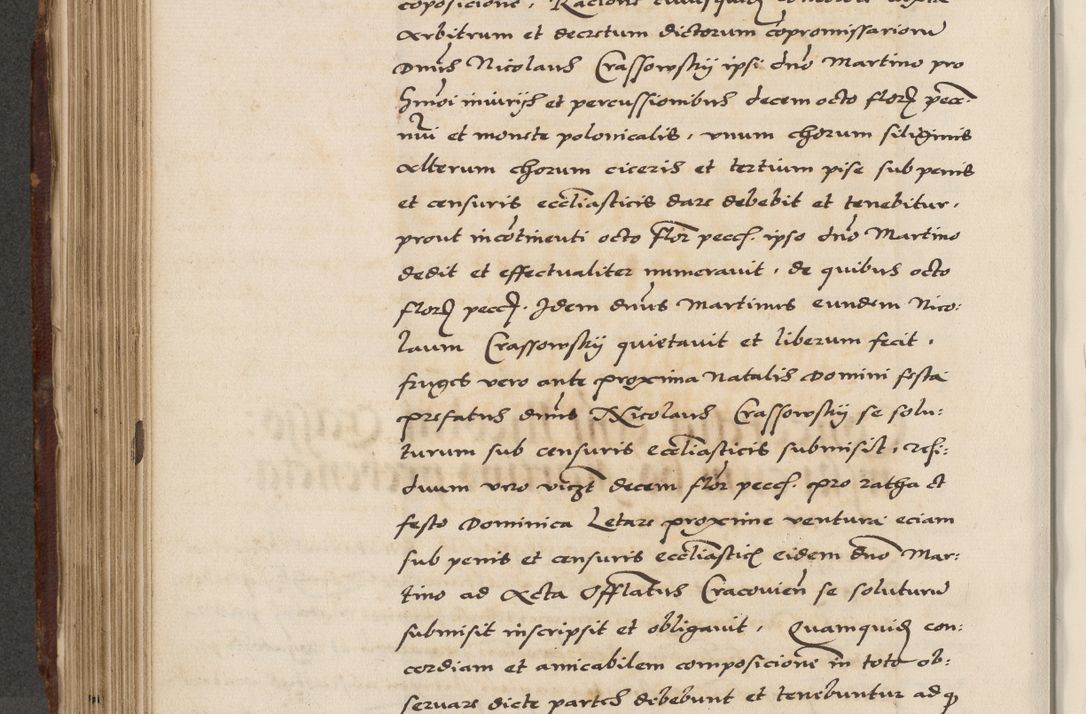 arbitrum et decretum dictorum cōpromissarioru
Dnus Nicolaus Crassowskij ipsi dno Martino pro
hmoi iniurijs et percussionibus decem octo flor pecu-
nui et monete polonicalis, vnum chorum siliginis
alterum chorum ciceris et tertium pise sub penis
et censuris eccliasticis dare debebit et tenebitur,
prout incōtinenti octo flor pecch. ipso dno Martino
dedit et effectualiter numerauit, de quibus octo
flor pecch. Idem dnus Martinus eundem Nico:
laum Crassowskij quietauit et liberum fecit,
fruges vero ante proxima Natalis Domini festa
prefatus dnus Nicolaus Crassowskij se solu:
turum sub censuris eccliasticis submisit, resi:
duum vero vizt decem flor pecch. pro ratha et
festo Dominica Letare proxime ventura eciam
sub penis et censuris eccliastic eidem dno Mar:
tino ad Acta Offlatus Cracouien se soluturu
submisit inscripsit et obligauit, Quamquid con:
cordiam et amicabilem composicione in toto ob:
seruare dicte partes debebunt et tenebuntur ad